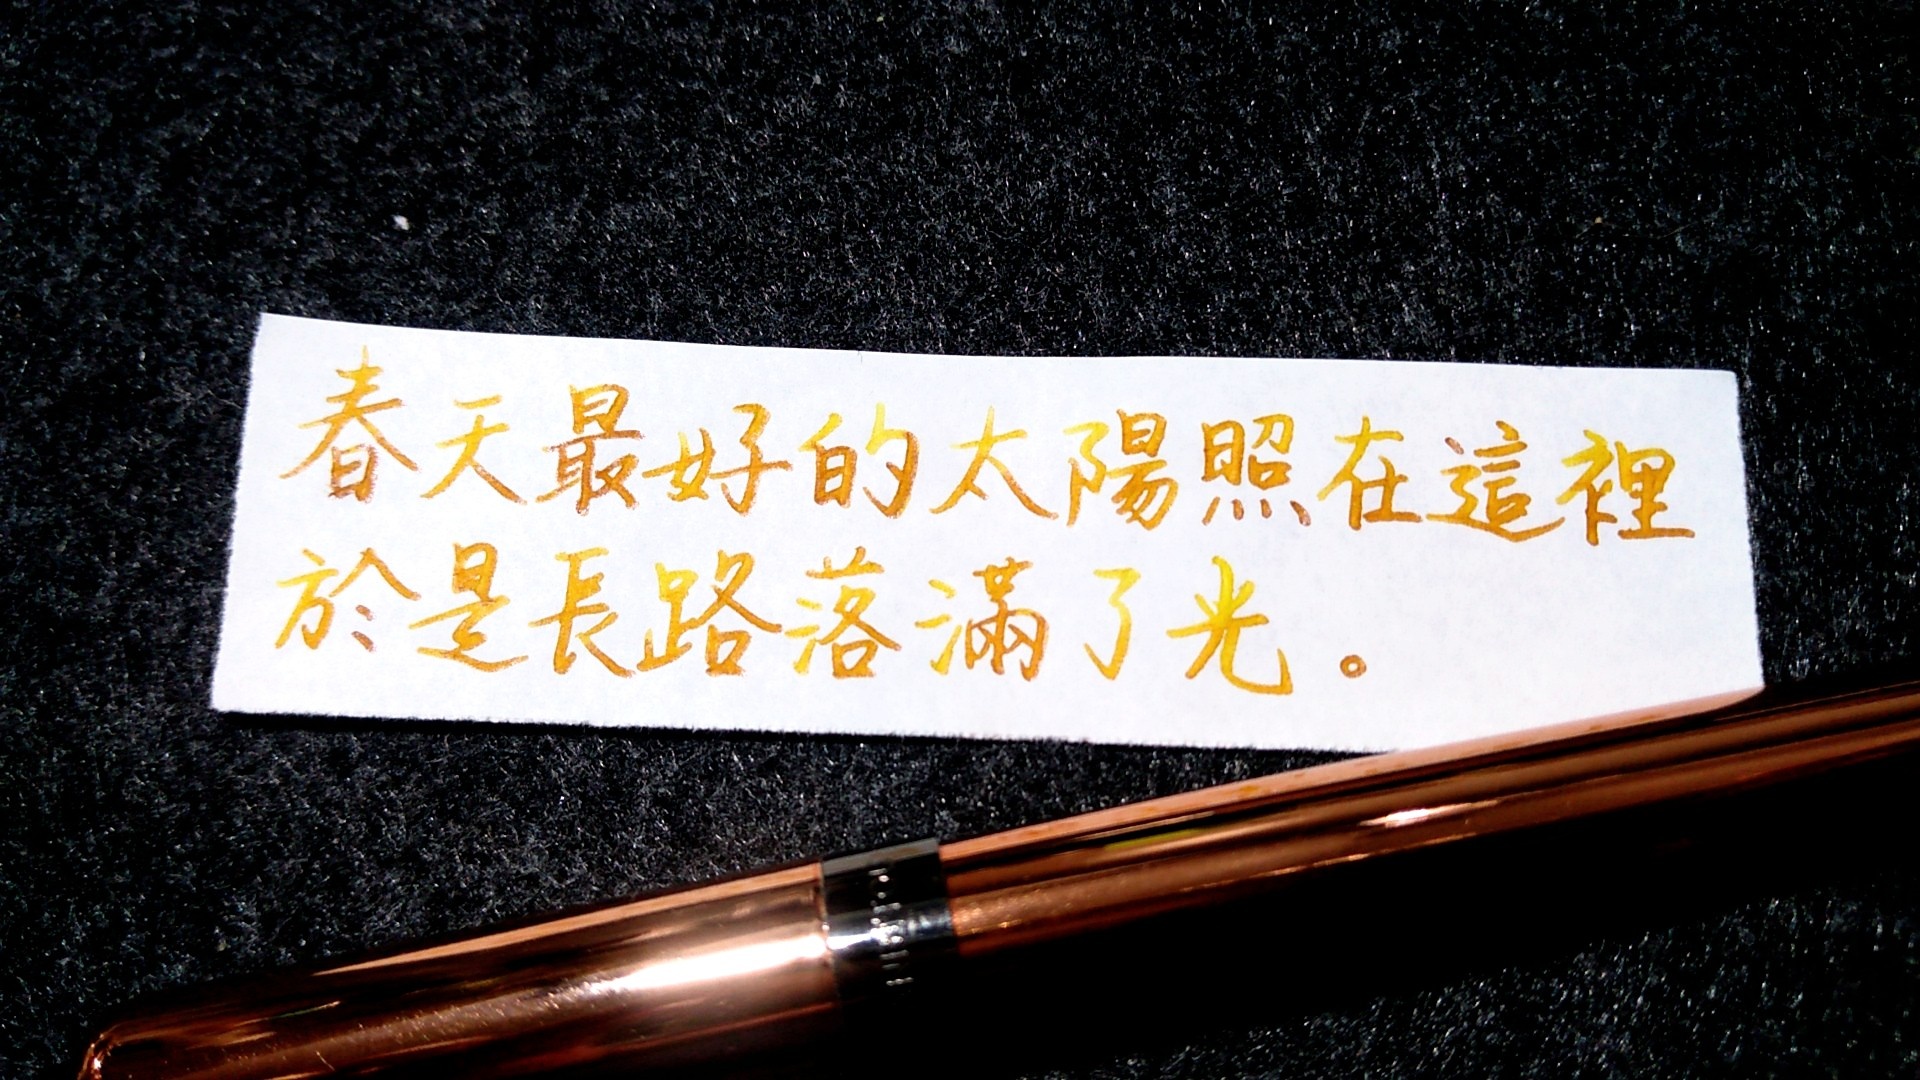 春天最好的太陽照在這裡
於是長路落滿了光。